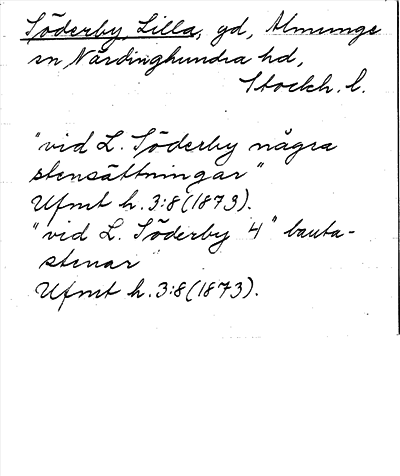 Söderby, Lilla, gd, Almunge
sn Närdinghundra hd,
Stockh. l.
"vid L. Söderby några
stensättningar"
Ufmt h. 3:8 (1873).
"vid L. Söderby 4" bauta-
stenar
Ufmt h. 3:8 (1873).